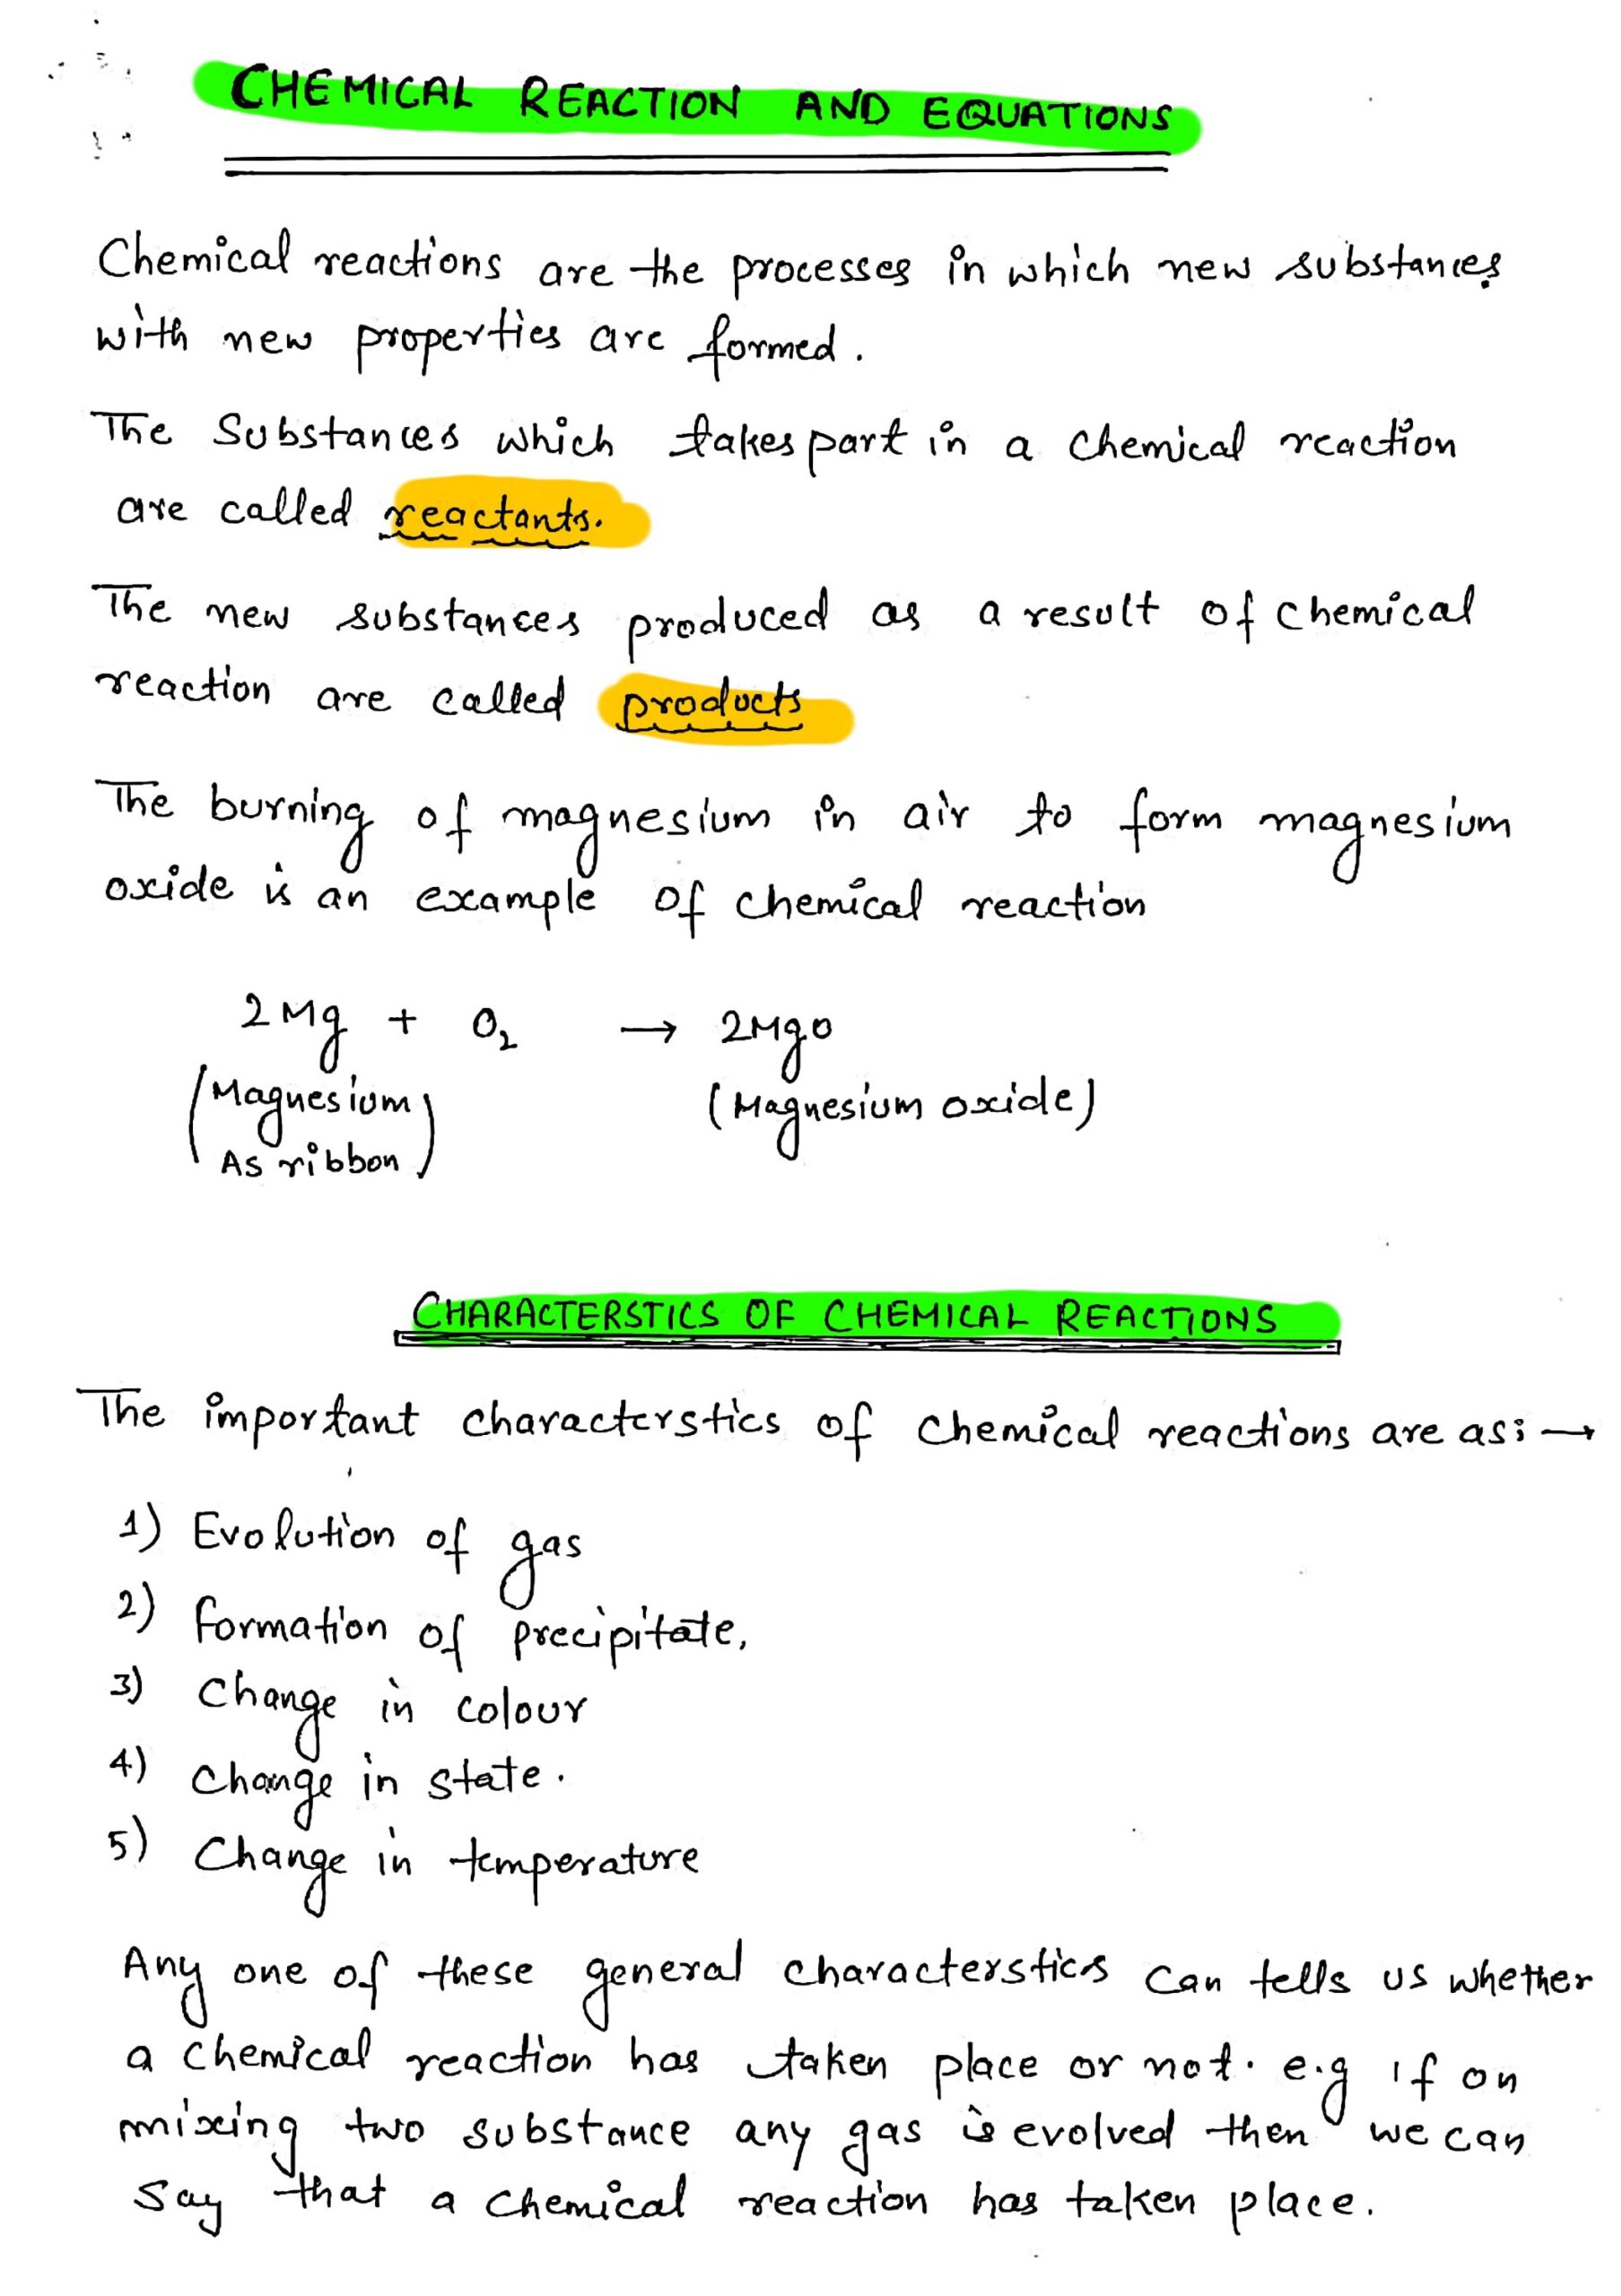 CHEMICAL REACTION AND EQUATIONS
Chemical reactions are the processes in which new substances
with new properties are formed.
The Substances which takes part in a chemical reaction
are called reactants.
The new substances produced as a result of chemical
reaction are called products
The burning of magnesium in air to form magnesium
oxide is an example of chemical reaction
2Mg + O₂ → 2MgO
(Magnesium As ribbon) (Magnesium oxide)
CHARACTERSTICS OF CHEMICAL REACTIONS
The important characterstics of chemical reactions are as: →
1) Evolution of gas
2) formation of precipitate.
3) Change in colour
4) Change in state.
5) Change in temperature
Any one of these general characterstics can tells us whether
a chemical reaction has taken place or not. e.g if on
mixing two substance any gas is evolved then we can
say that a chemical reaction has taken place.